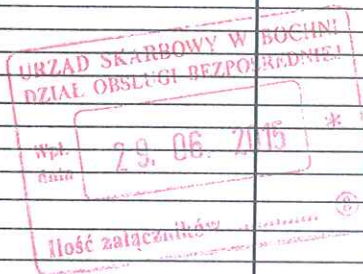 URZĄD SKARBOWY W BOCHNI
DZIAŁ OBSŁUGI BEZPOŚREDNIEJ
Wpł. 29. 06. 2015 *
dnia
Ilość załączników ............